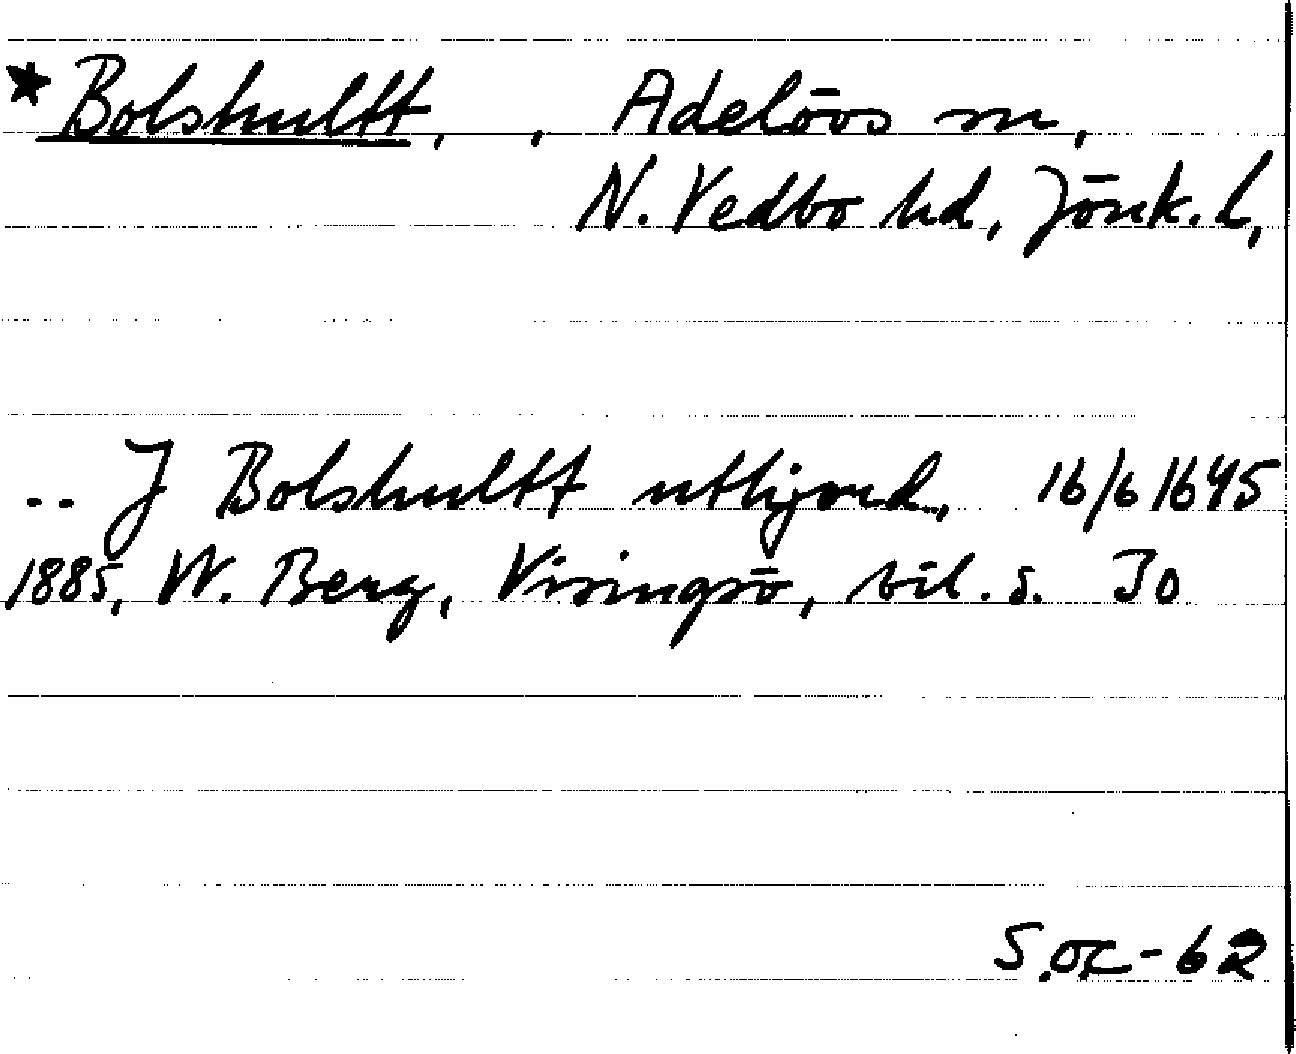 * Bolshultt, , Adelövs sn,
N. Vedbo hd, Jönk. l,
.. J Bolshultt uthjord, 16/6 1645
1885, W. Berg, Visingsö, bil. s. 30
S.OC-62